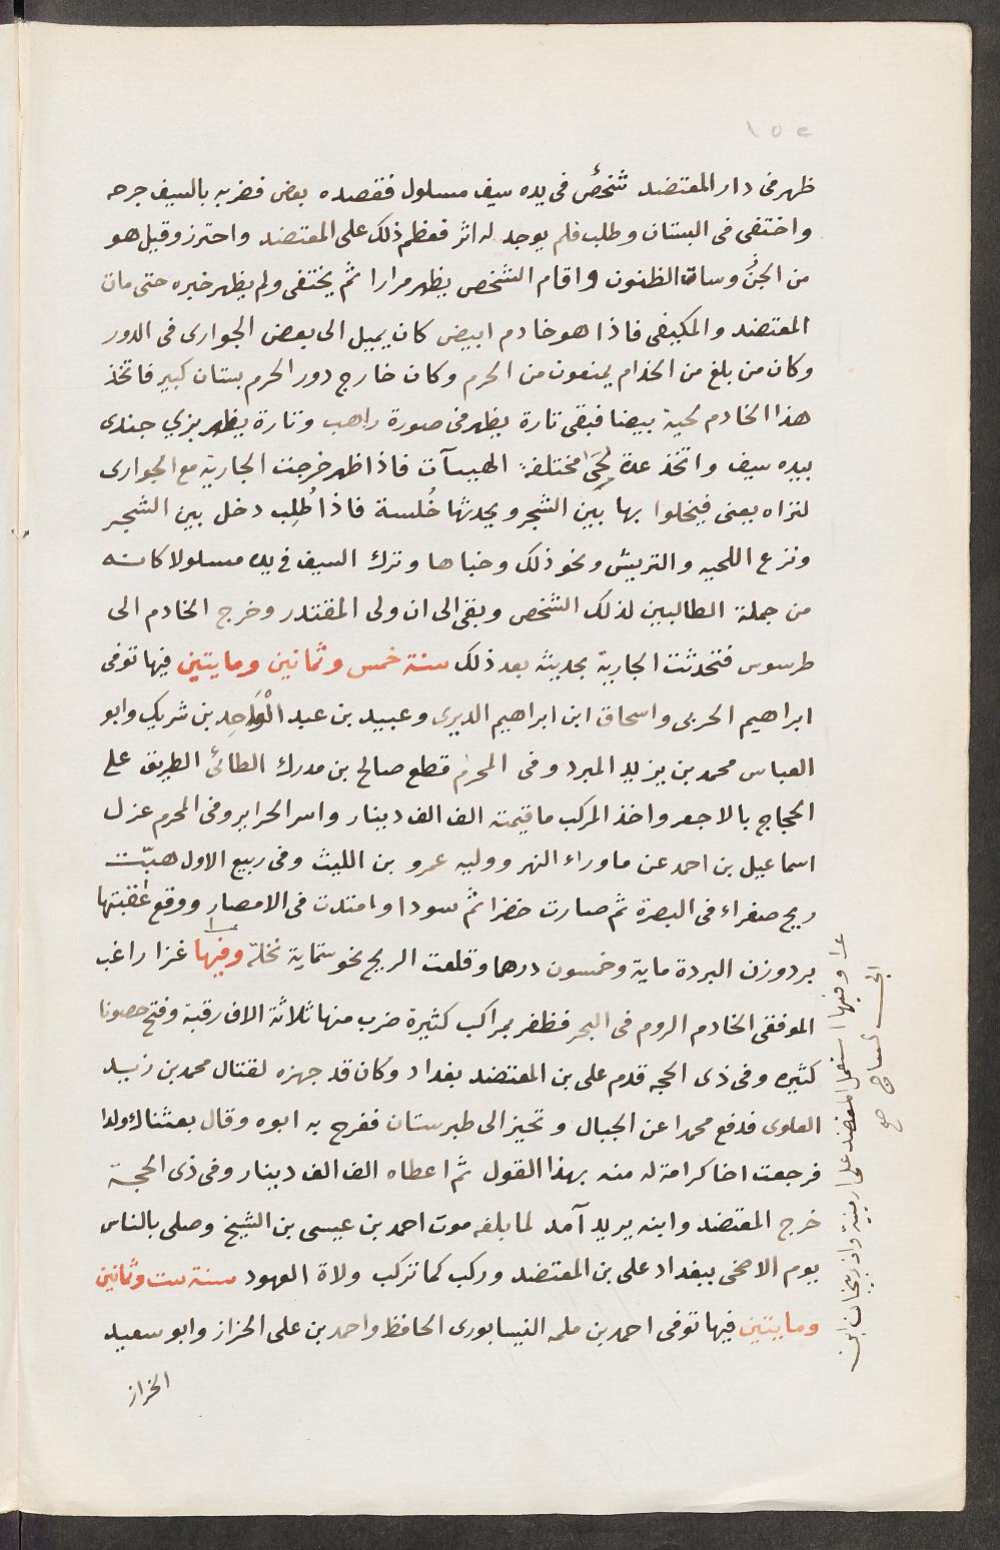 ١٥٢
ظهر فى دار المعتضد شخصٌ فى يده سيف مسلول فقصده بعض فضربه بالسيف جرحه
واختفى فى البستان وطلب فلم يوجد له اثر فعظم ذلك على المعتضد واحترز وقيل هو
من الجنُ وسات الظنون واقام الشخص يظهر مرارا ثم يختفى ولم يظهر خبره حتى مات
المعتضد والمكتفى فاذا هو خادم ابيض كان يميل الى بعض الجوارى فى الدور
وكان من بلغ من الخدام يمنعون من الحرم وكان خارج دور الحرم بستان كبير فاتخذ
هذا الخادم لحية بيضا فبقى تارة يظهر فى صورة راهب وتارة يظهر بزي جندى
بيده سيف واتخذ عدة لِحَىً مختلفة الهيىآت فاذا ظهر خرجت الجارية مع الجوارى
لتراه يعنى فيخلوا بها بين الشجر ويحدثها خُلسة فاذا طُلِب دخل بين الشجر
ونزع اللحيه والتربش ونحو ذلك وخباها وترك السيف فى يده مسلولا كانه
من جملة الطالبين لذلك الشخص وبقى الى ان ولى المقتدر وخرج الخادم الى
طرسوس فتحدثت الجارية بحديثه بعد ذلك سنة خمس وثمانين ومايتين فيها توفى
ابراهيم الحربى واسحاق ابن ابراهيم الدبرى وعبيد بن عبد الْوَاحِد بن شريك وابو
العباس محمد بن يزيد المبرد وفى المحرم قطع صالح بن مدرك الطائى الطريق على
الحجاج بالاجعر واخذ المركب ما قيمته الف الف دينار واسر الحراير وفى المحرم عزل
اسماعيل بن احمد عن ما وراء النهر ووليه عمرو بن الليث وفى ربيع الاول هبّت
ريح صفراء فى البصرة ثم صارت خضرا ثم سودا وامتدت فى الامصار ووقع عقبتها
برد وزن البردة ماية وخمسون درهما وقلعت الريح نحو ستماية نخلة وفيها غزا راغب
الموفقى الخادم الروم فى البحر فظفر بمراكب كثيرة ضرب منها ثلاثة الاف رقبة وفتح حصونا
كثيره وفى ذى الحجه قدم على بن المعتضد بغداد وكان قد جهزه لقتال محمد بن زيد
العلوى فدفع محمدا عن الجبال وتحيز الى طبرستان ففرح به ابوه وقال بعثناك ولدا
فرجعت اخا كرامة له منه بهذا القول ثم اعطاه الف الف دينار وفى ذى الحجة
خرج المعتضد وابنه يريد آمد لما بلغه موت احمد بن عيسى بن الشيخ وصلى بالناس
يوم الاضحى ببغداد على بن المعتضد وركب كما تركب ولاة العهود سنة ست وثمانين
ومايتين فيها توفى احمد بن سلمه النيسابورى الحافظ واحمد بن على الخزاز وابو سعيد
الخراز
وفيها استعمل المعتضد على ارمينية واذربيجان ابن
ابى الساج صح